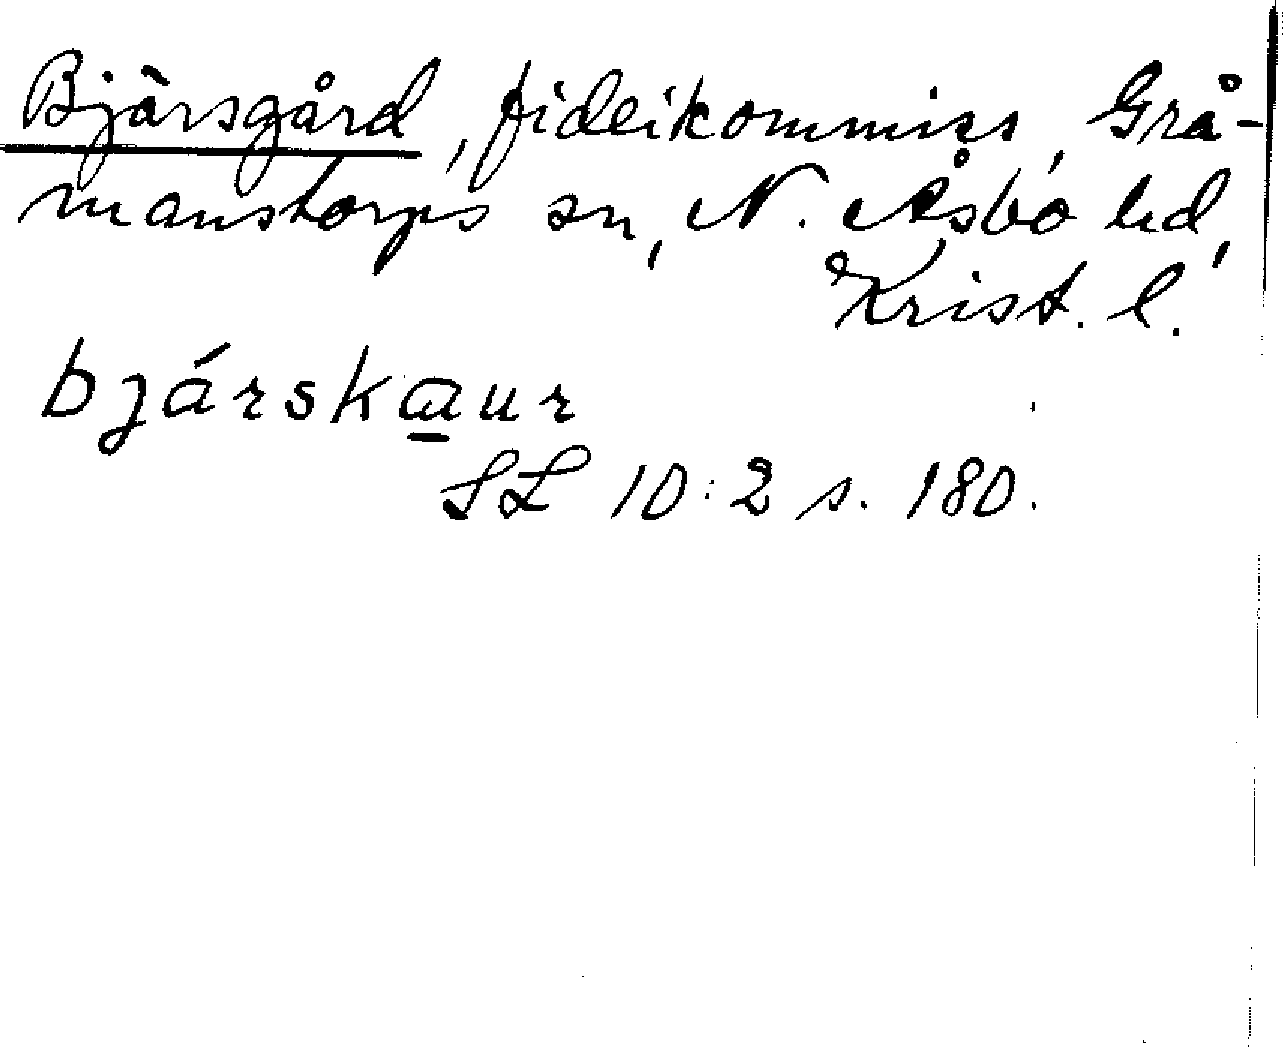 Bjärsgård, fideikommiss, Grå-
manstorps sn, N. Åsbo hd,
Krist. l.
bjárskaur
SL 10:2 s. 180.